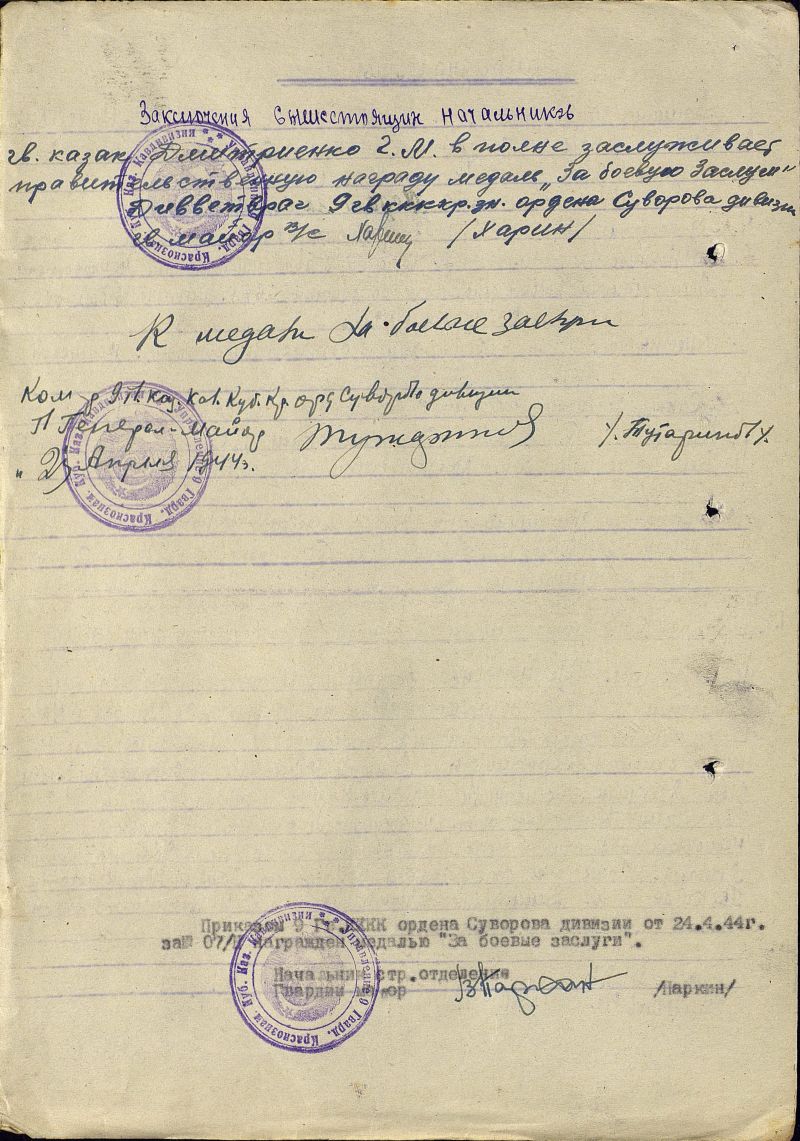 Заключения вышестоящих начальников
гв. казак Дмитриенко Г. М. в полне заслуживает
правительственную награду медаль „За боевую Заслуги"
Дивветврач 9 гв ккккр.зн. ордена Суворова дивизии
гв майор в/с /Харин/
К медали За боевые заслуги
Ком-р 9 гв. каз. кав. Куб. Кр. орд Суворова дивизии
Генерал-Майор /Тутаринов/.
Апреля 1944г.
Приказом 9 Гв. ККК ордена Суворова дивизии от 24.4.44г.
за№ 07/ Награжден медалью "За боевые заслуги".
Начальник стр.отделение
Гвардии майор /Паркин/
Управление 9 Гвард. Краснознам. Куб. Каз. Кавдивизии